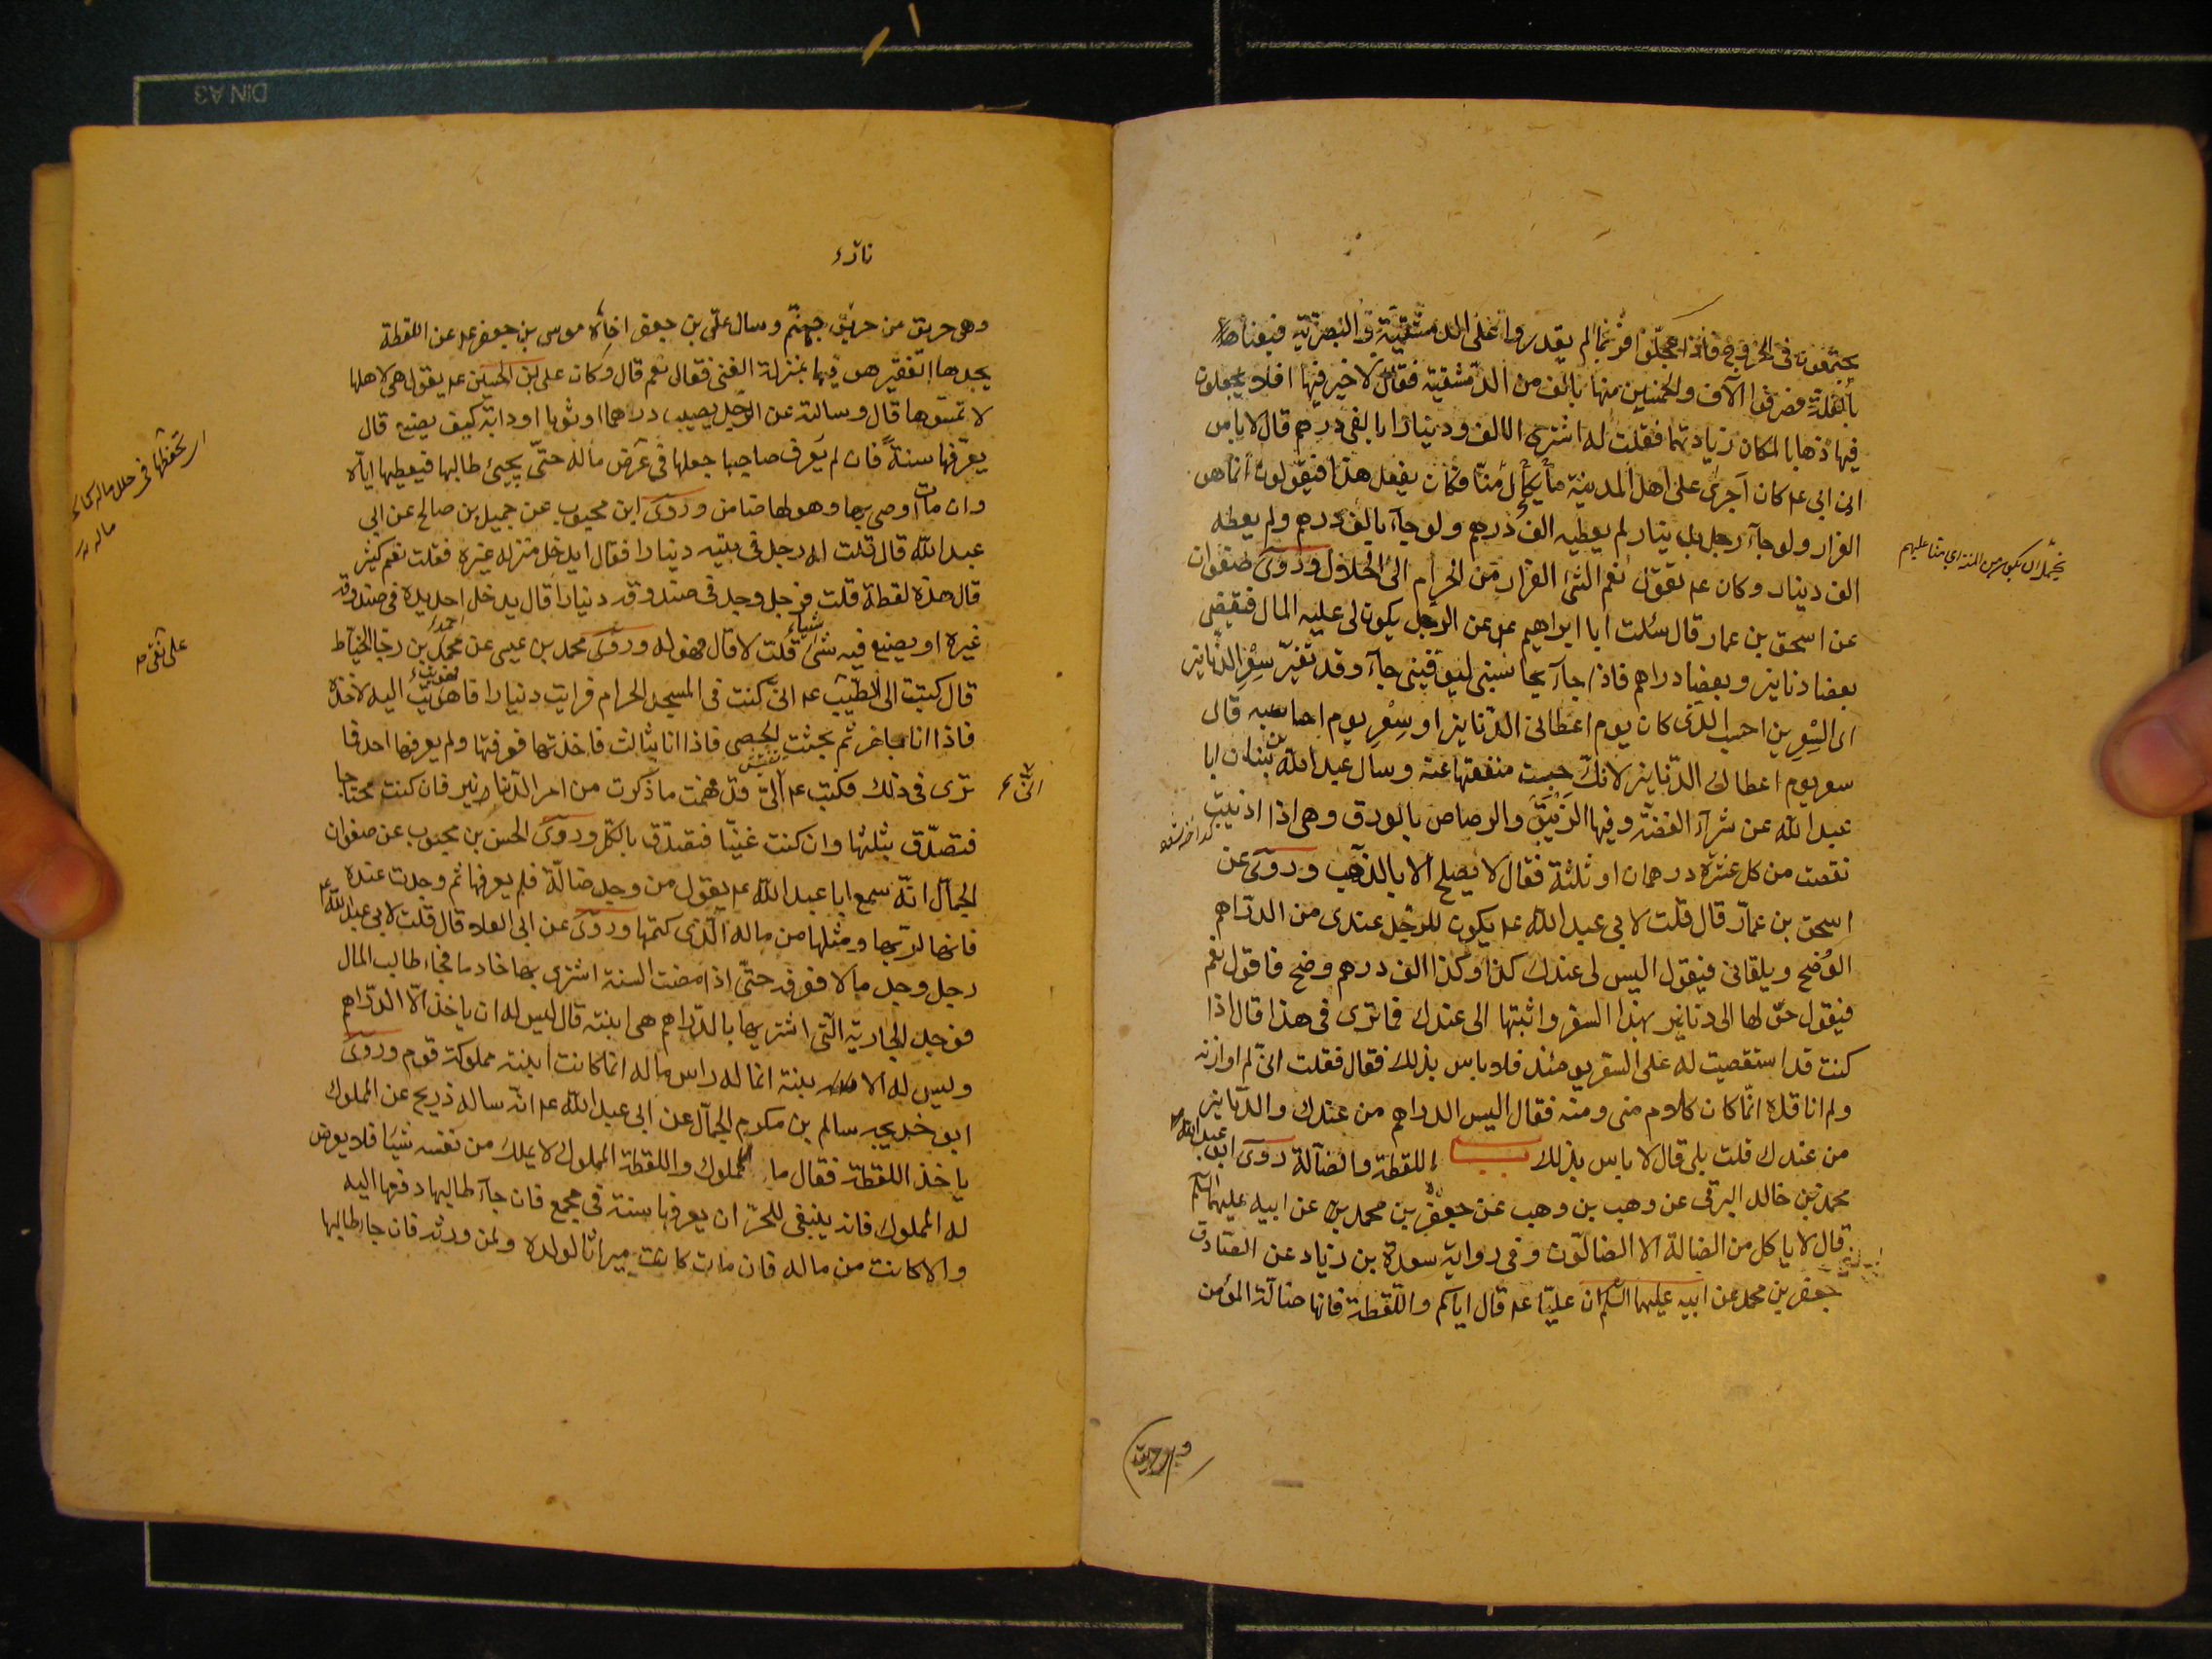 يجتمعون فى الخروج فاذا عجلوا فربما لم يقدروا على الدمشقية و البصرية فبعثوا
بالغلة فصرفوا الالاف والخمسين منها بالف من الدمشقية فقال لا خير فيها افلا يجعلون
فيها ذهبا لمكان زيادتها فقلت له اشترى الالف ودينارا بالفى درهم قال لا باس
ان ابى عم كان اجرى على اهل المدينة منا فكان يفعل هذا فيقولون انما هو
الفرار ولو جآء رجل بدينار لم يعطه الف درهم ولو جآء بالف درهم لم يعطه
الف دينار وكان عم يقول نعم الشئ الفرار من الحرام الى الحلال وروى صفوان
عن اسحق بن عمار قال سئلت ابا ابراهيم عم عن الرجل يكون لى عليه المال فيقضى
بعضا دنانير وبعضا دراهم فاذا جآء يحاسبنى ليوفينى جآء وقد تغير سعر الدنانير
اى السعرين احسب الذى كان يوم اعطانى الدنانير او سعر يوم احاسبه قال
سعر يوم اعطاك الدنانير لانك حبست منفعتها عنه وسال عبد الله بن سنان ابا
عبد الله عن شرآء الفضة وفيها الزيبق والرصاص بالورق وهى اذا اذيبت
نقصت من كل عشرة درهمان او ثلثة فقال لا يصلح الا بالذهب وروى عن
اسحق بن عمار قال قلت لابى عبد الله عم يكون للرجل عندى من الدراهم
الوضح ويلقانى فيقول اليس لى عندك كذا وكذا الف درهم وضح فاقول نعم
فيقول حولها لى دنانير بهذا السعر واثبتها لى عندك فما ترى فى هذا قال اذا
كنت قد استقصيت له على السعر يومئذ فلا باس بذلك فقال فقلت انى لم اوازنه
ولم اناقده انما كان كلام منى ومنه فقال اليس الدراهم من عندك والدنانير
من عندك قلت بلى قال لا باس بذلك باب اللقطة والضالة روى ابو عبد الله
محمد بن خالد البرقى عن وهب بن وهب عن جعفر بن محمد عن ابيه عليهما السلم
قال لا ياكل من الضالة الا الضالون وفى رواية مسعدة بن زياد عن الصادق
جعفر بن محمد عن ابيه عليهما السلم ان عليا عم قال اياكم واللقطة فانها ضالة المؤمن
وهى حريق
وهى حريق من حريق جهنم وسال على بن جعفر اخاه موسى بن جعفر عم عن اللقطة
يجدها الفقير هو فيها بمنزلة الغنى فقال نعم قال وكان على بن الحسين عم يقول هى لاهلها
لا تمسوها قال وسالته عن الرجل يصيب درهما او ثوبا او دابة كيف يصنع قال
يعرفها سنة فان لم يعرف صاحبها جعلها فى عرض ماله حتى يجيئ طالبها فيعطيها اياه
وان مات اوصى بها وهو لها ضامن وروى ابن محبوب عن جميل بن صالح عن ابى
عبد الله قال قلت له رجل وجد فى بيته دينارا فقال ايدخل منزله غيره فقلت نعم كثير
قال هذه لقطة قلت فرجل وجد فى صندوقه دينارا قال يدخل احد يده فى صندوقه
غيره او يصنع فيه شيئا قلت لا قال فهو له وروى محمد بن عيسى عن محمد بن رجا الخياط
قال كتبت الى الطيب عم انى كنت فى المسجد الحرام فرايت دينارا فاهويت اليه لاخذه
فاذا انا باخر ثم بحثت الحصى فاذا انا بثالث فاخذتها فعرفتها ولم يعرفها احد فما
ترى فى ذلك فكتب عم الى قد فهمت ما ذكرت من امر الدنانير فان كنت محتاجا
فتصدق بثلثها وان كنت غنيا فتصدق بالكل وروى الحسن بن محبوب عن صفوان
الجمال انه سمع ابا عبد الله عم يقول من وجد ضالة فلم يعرفها ثم وجدت عنده
فانها لربها ومثلها من ماله الذى كتمها وروى عن ابى العلا قال قلت لابى عبد الله عم
رجل وجد مالا فعرفه حتى اذا مضت السنة اشترى بها خادما فجاء طالب المال
فوجد الجارية التى اشتريها بالدراهم هى ابنته قال ليس له ان ياخذ الا الدراهم
وليس له الابنة انما له راس ماله انما كانت ابنته مملوكة قوم وروى
ابو خديجه سالم بن مكرم الجمال عن ابى عبد الله عم انه ساله ذريح عن المملوك
ياخذ اللقطة فقال ما للمملوك واللقطة المملوك لا يملك من نفسه شيئا فلا يعرض
له المملوك فانه ينبغى للحر ان يعرفها سنة فى مجمع فان جآء طالبها دفعها اليه
والا كانت من ماله فان مات كانت ميراثا لولده ولمن ورثه فان جاء طالبها